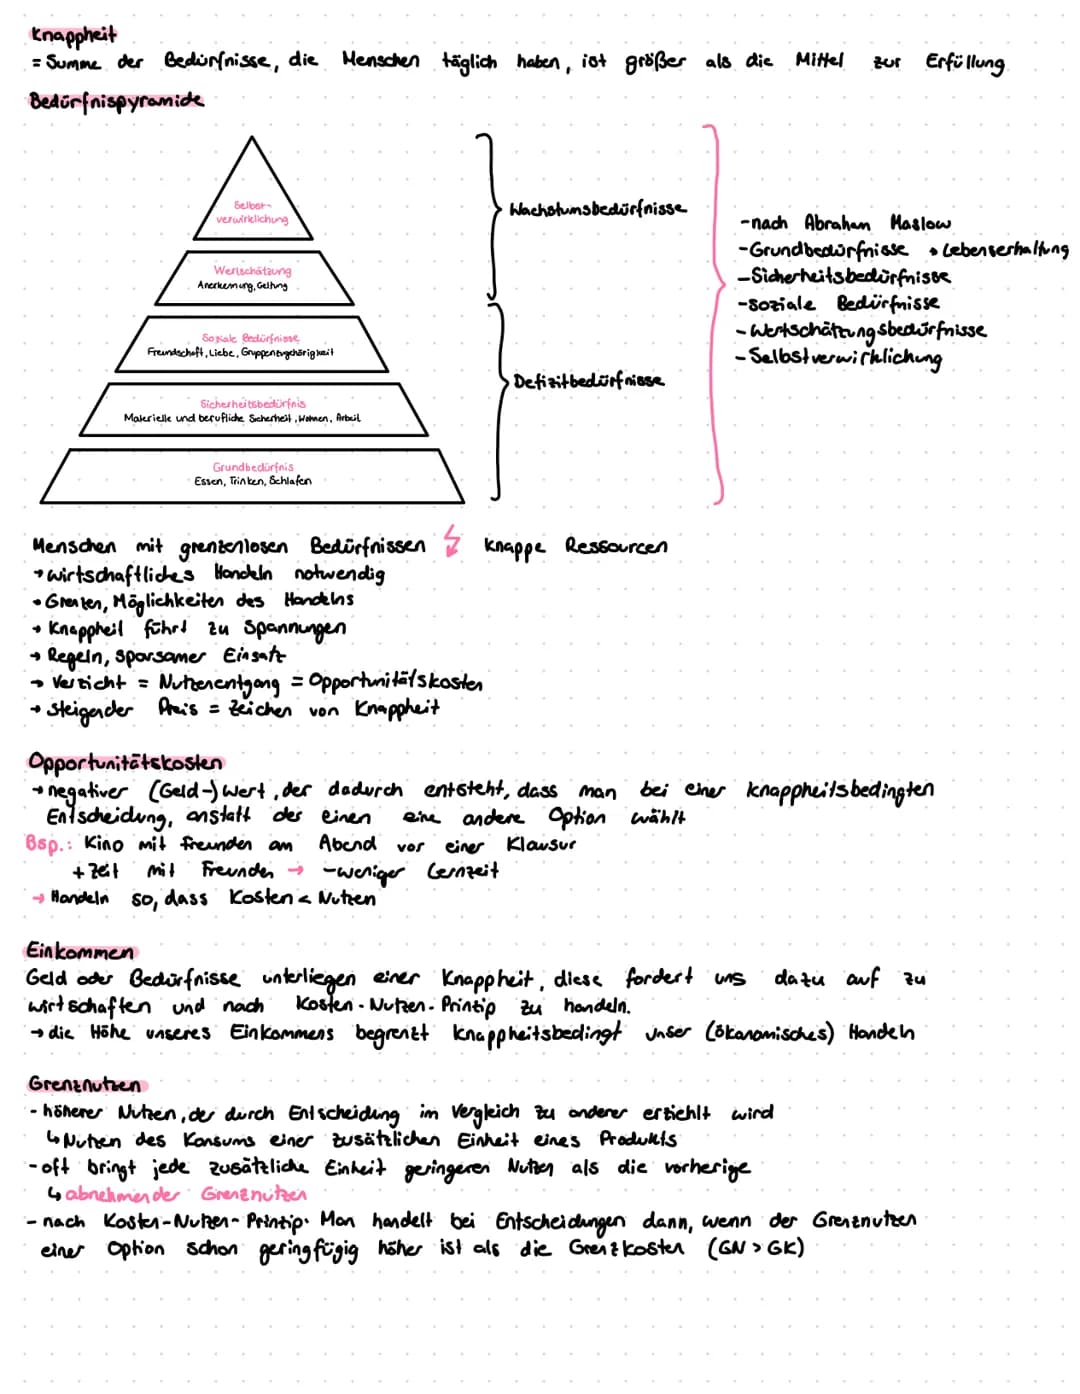 Knappheit
= Summe der Bedürfnisse, die Menschen täglich haben, ist größer als die Mittel zur Erfüllung
Bedürfnispyramide
Selbst-
verwirklichung
Wertschätzung
Anerkennung, Geltung
Soziale Bedürfnisse
Freundschaft, Liebe, Gruppenzugehörigkeit
Sicherheitsbedürfnis
Materielle und berufliche Sicherheit, Wohnen, Arbeit
Grundbedürfnis
Essen, Trinken, Schlafen
Wachstumsbedürfnisse
Defizitbedürfnisse
-nach Abraham Maslow
-Grundbedürfnisse → Lebenserhaltung
-Sicherheitsbedürfnisse
-soziale Bedürfnisse
-Wertschätzungsbedürfnisse
-Selbstverwirklichung
Menschen mit grenzenlosen Bedürfnissen ↯ knappe Ressourcen
→ wirtschaftliches Handeln notwendig
→ Grenzen, Möglichkeiten des Handelns
→ Knappheit führt zu Spannungen
→ Regeln, sparsamer Einsatz
→ Verzicht = Nutzenentgang = Opportunitätskosten
→ steigender Preis = Zeichen von Knappheit
Opportunitätskosten
→ negativer (Geld-)wert, der dadurch entsteht, dass man bei einer knappheitsbedingten
Entscheidung, anstatt der einen eine andere Option wählt
Bsp.: Kino mit Freunden am Abend vor einer Klausur
+ Zeit mit Freunden → -weniger Lernzeit
→ Handeln so, dass Kosten < Nutzen
Einkommen
Geld oder Bedürfnisse unterliegen einer Knappheit, diese fordert uns dazu auf zu
wirtschaften und nach Kosten-Nutzen-Prinzip zu handeln.
→ die Höhe unseres Einkommens begrenzt knappheitsbedingt unser (ökonomisches) Handeln
Grenznutzen
- höherer Nutzen, der durch Entscheidung im Vergleich zu anderer erziehlt wird
↳ Nutzen des Konsums einer zusätzlichen Einheit eines Produkts
- oft bringt jede zusätzliche Einheit geringeren Nutzen als die vorherige
↳ abnehmender Grenznutzen
- nach Kosten-Nutzen-Prinzip: Man handelt bei Entscheidungen dann, wenn der Grenznutzen
einer Option schon geringfügig höher ist als die Grenzkosten (GN > GK)